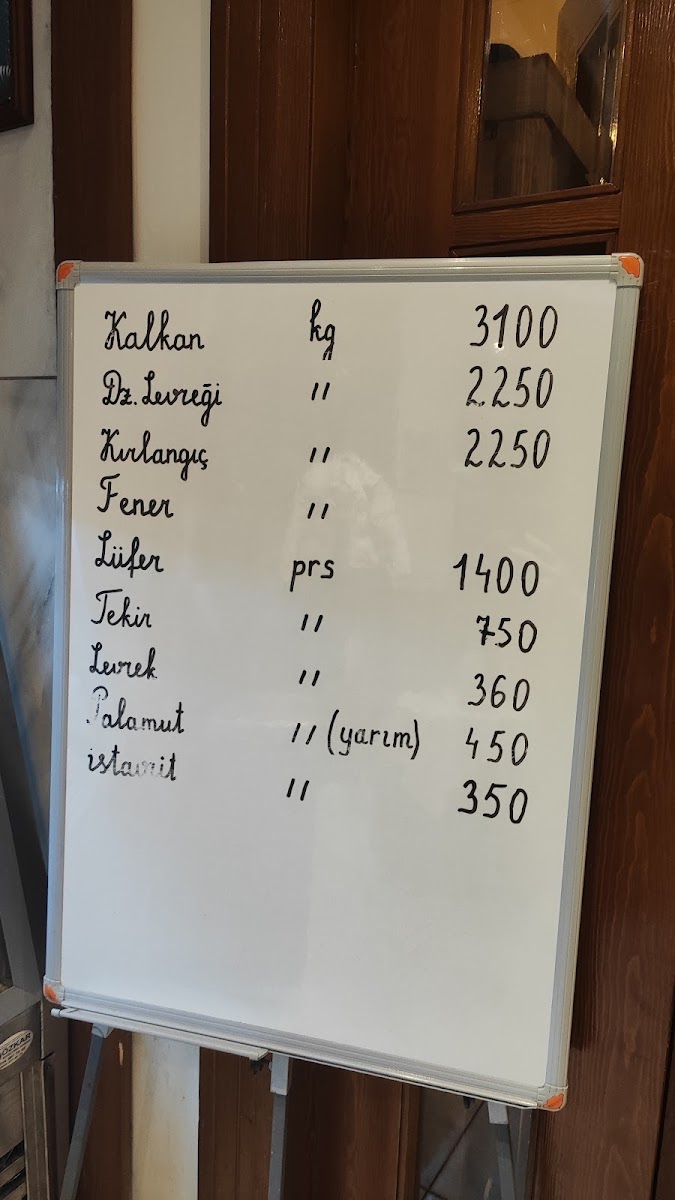 Kalkan kg 3100
Dz. Levreği " 2250
Kırlangıç " 2250
Fener "
Lüfer prs 1400
Tekir " 750
Levrek " 360
Palamut " (yarım) 450
istavrit " 350
ÖZKAR